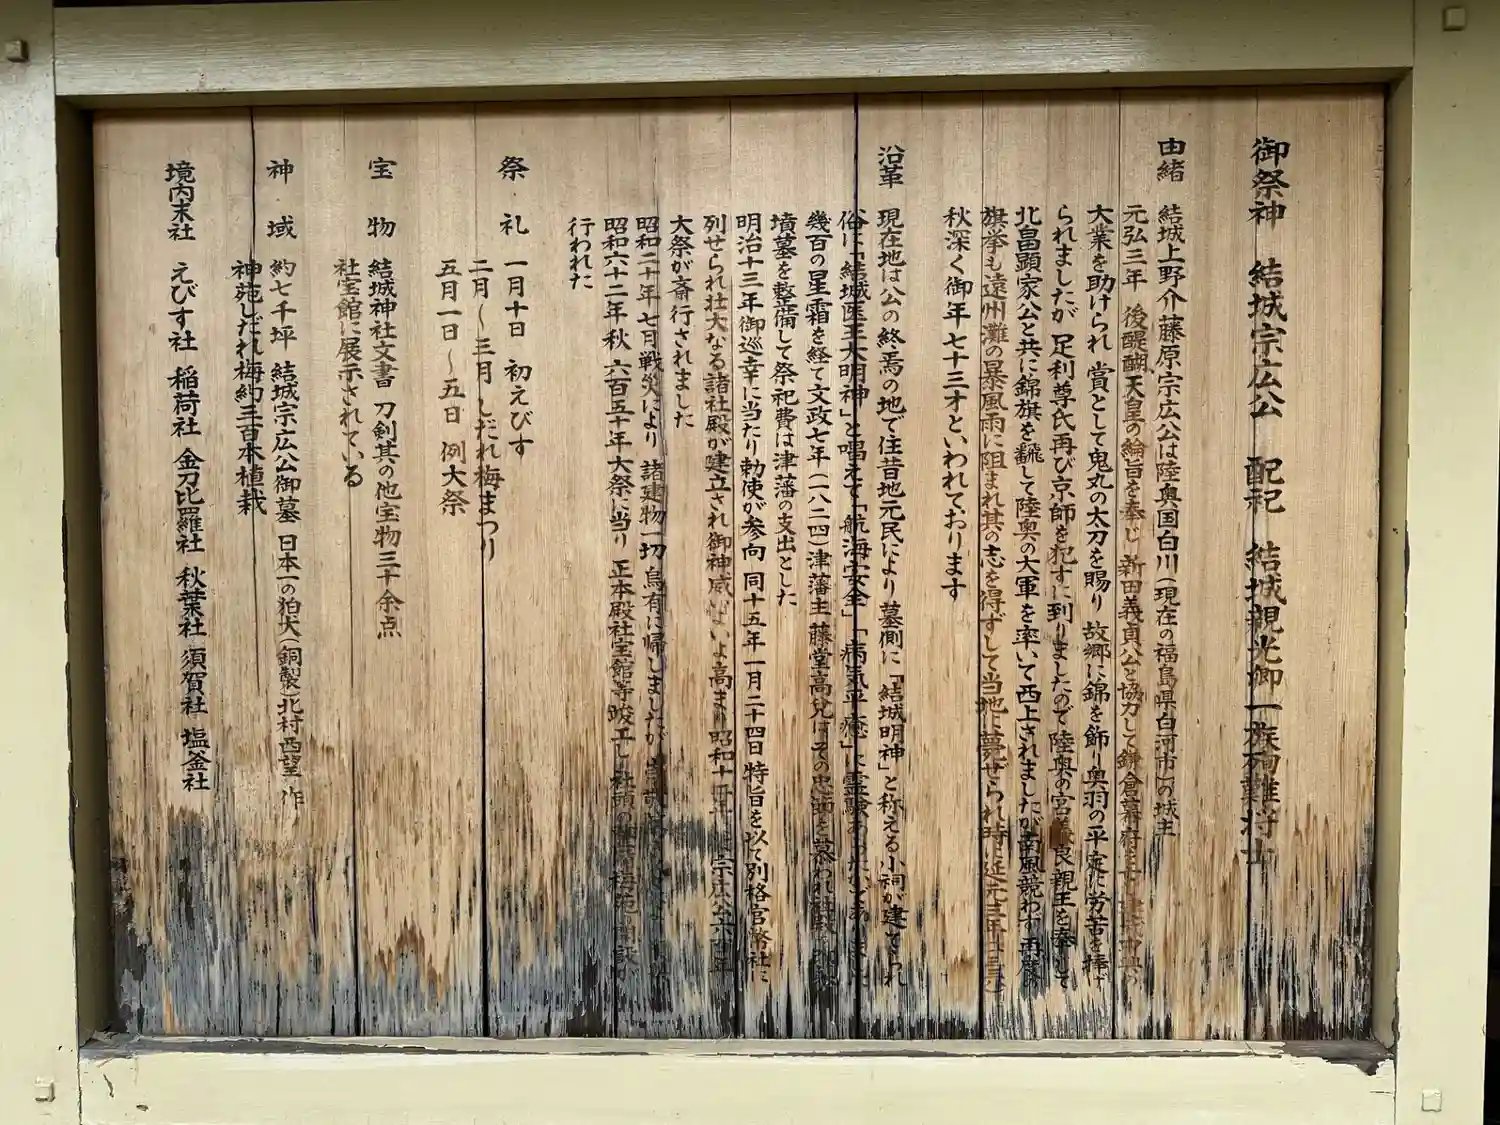 御祭神 結城宗広公 配祀 結城親光卿 一族殉難将士
由緒 結城上野介藤原宗広公は陸奥国白川(現在の福島県白河市)の城主
元弘三年 後醍醐天皇の綸旨を奉じ 新田義貞公と協力して鎌倉幕府を
大業を助けられ 賞として鬼丸の太刀を賜り 故郷に錦を飾り奥羽の平定に労苦を捧げ
られましたが 足利尊氏再び京師を犯すに到りましたので 陸奥の宮義良親王を奉じて
北畠顕家公と共に錦旗を飜して陸奥の大軍を率いて西上されましたが南風競わず 再度の
旗挙も遠州灘の暴風雨に阻まれ其の志を得ずして当地に薨ぜられ時に延元三年
秋深く御年七十三才といわれております
沿革 現在地は公の終焉の地で住昔地元民により 墓側に「結城明神」と称える小祠が建てられ
俗に「結城医王大明神」と唱えて「航海安全」「病気平癒」に霊験あ
幾百の星霜を経て文政七年(一八二四)津藩主 藤堂高兌はその忠節を慕われ社殿
墳墓を整備して祭祀費は津藩の支出とした
明治十三年御巡幸に当たり勅使が参向 同十五年一月二十四日 特旨を以て別格官幣社に
列せられ壮大なる諸社殿が建立され御神威いよいよ高まり昭和十 宗広公六百年
大祭が斎行されました
昭和二十年七月戦災により 諸建物一切 烏有に帰しましたが
昭和六十二年秋 六百五十年大祭に当り 正本殿社宝館等竣工し社頭の
行われた
祭礼 一月十日 初えびす
二月〜三月 しだれ梅まつり
五月一日〜五日 例大祭
宝物 結城神社文書 刀剣其の他宝物三十余点
社宝館に展示されている
神域 約七千坪 結城宗広公御墓 日本一の狛犬(銅製)北村西望 作
神苑しだれ梅約三百本植栽
境内末社 えびす社 稲荷社 金刀比羅社 秋葉社 須賀社 塩釜社